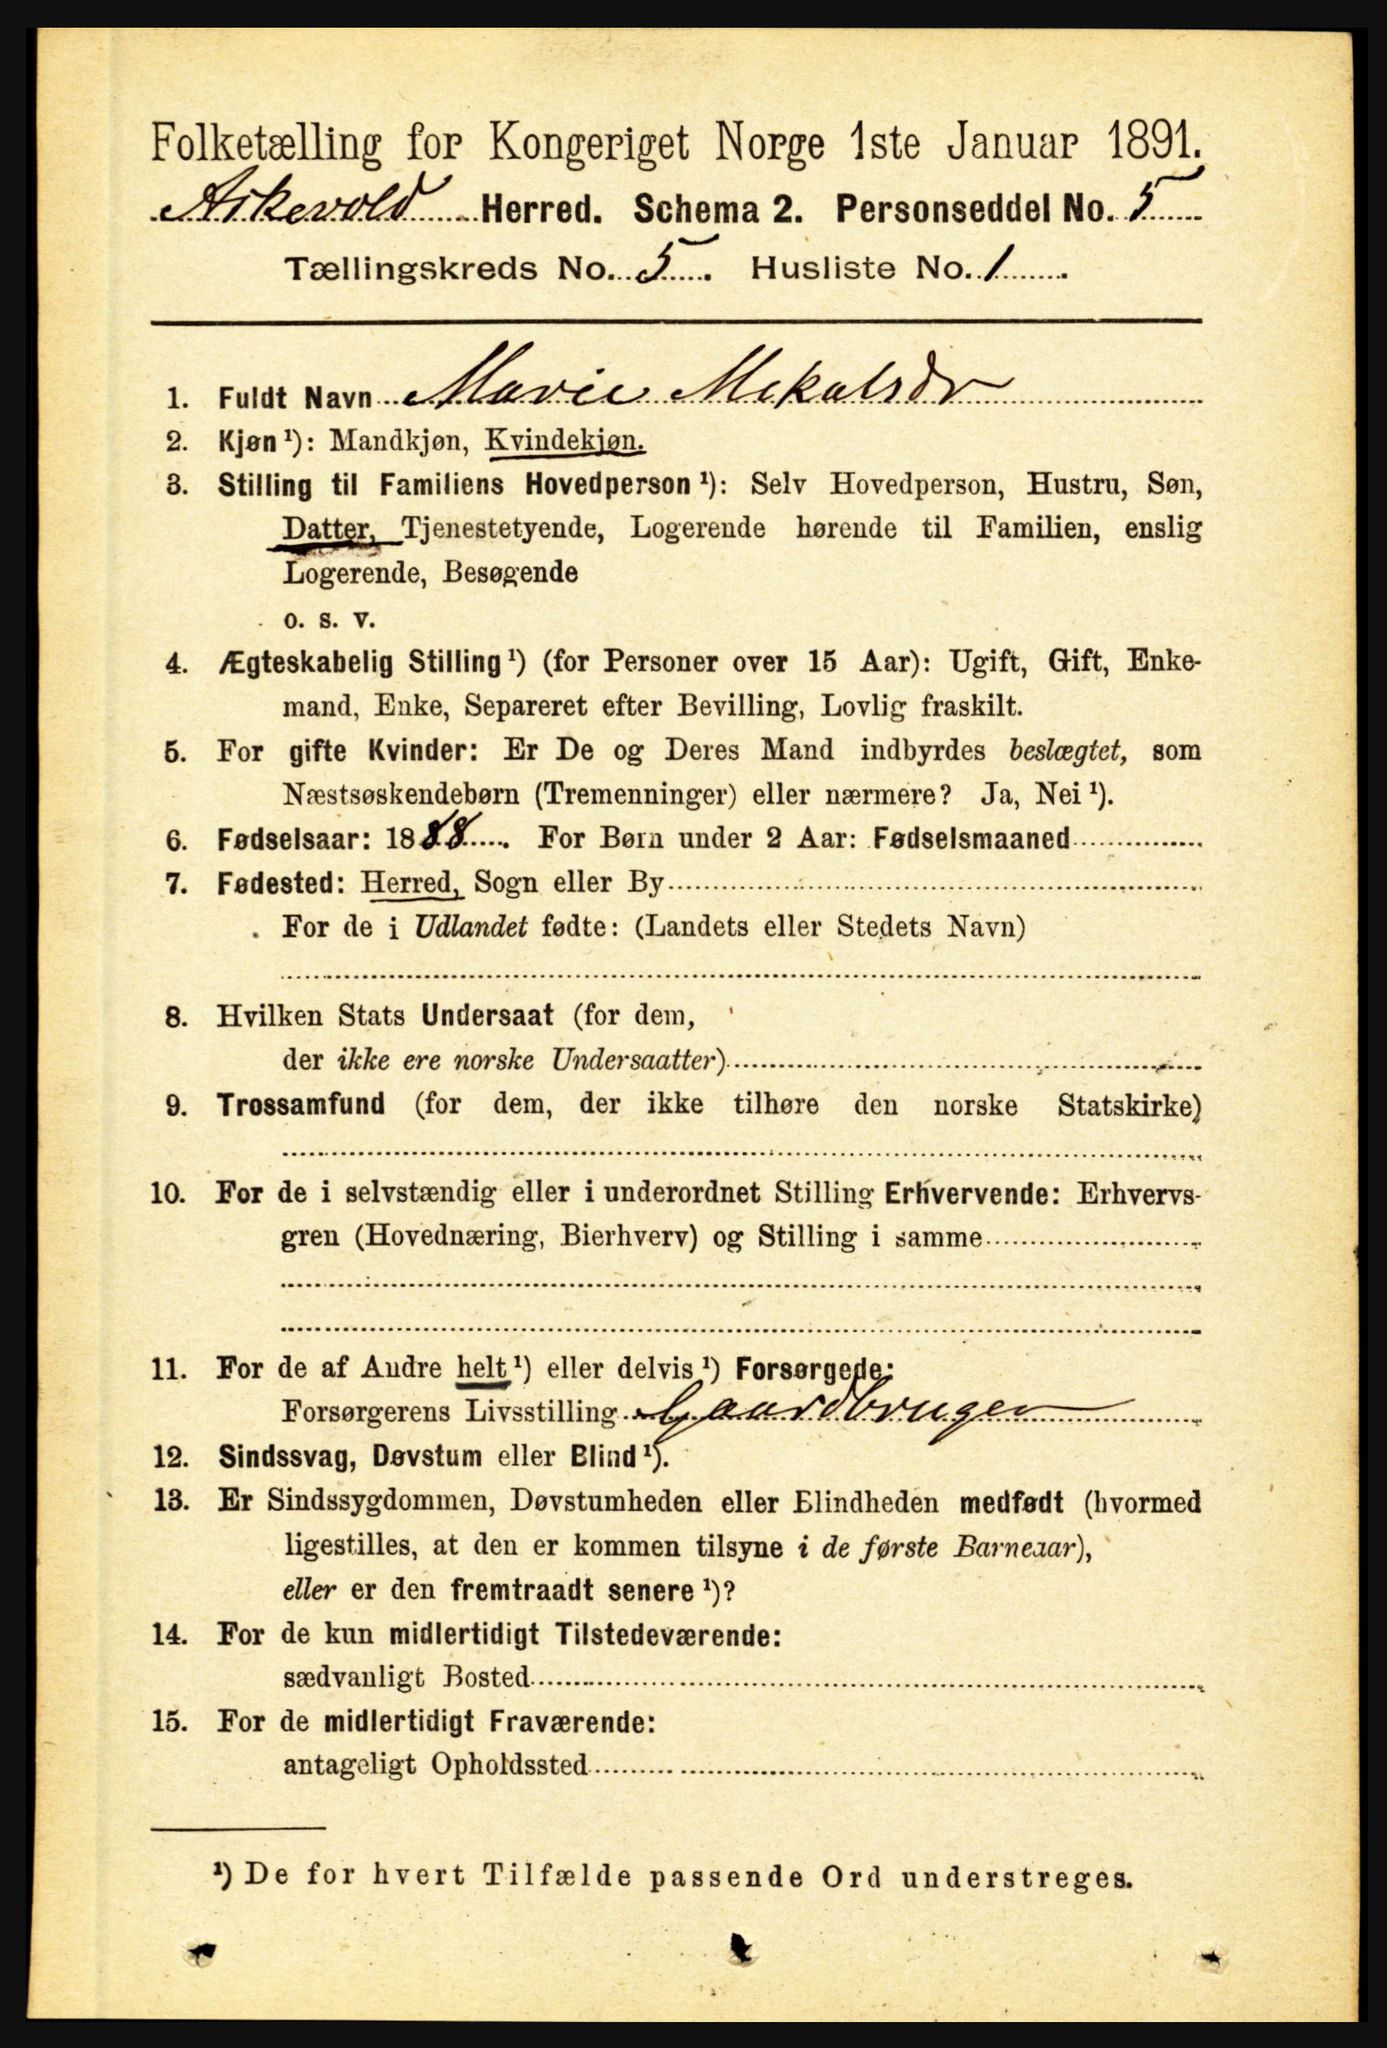 Folketælling for Kongeriget Norge 1ste Januar 1891.
Askevold Herred. Schema 2. Personseddel No. 5
Tællingskreds No. 5. Husliste No. 1.
1. Fuldt Navn Marie Mekalsdr
2. Kjøn ¹): Mandkjøn, Kvindekjøn.
3. Stilling til Familiens Hovedperson ¹): Selv Hovedperson, Hustru, Søn,
Datter, Tjenestetyende, Logerende hørende til Familien, enslig
Logerende, Besøgende
o. s. v.
4. Ægteskabelig Stilling ¹) (for Personer over 15 Aar): Ugift, Gift, Enke-
mand, Enke, Separeret efter Bevilling, Lovlig fraskilt.
5. For gifte Kvinder: Er De og Deres Mand indbyrdes beslægtet, som
Næstsøskendebørn (Tremenninger) eller nærmere? Ja, Nei ¹).
6. Fødselsaar: 1888. For Børn under 2 Aar: Fødselsmaaned
7. Fødested: Herred, Sogn eller By
For de i Udlandet fødte: (Landets eller Stedets Navn)
8. Hvilken Stats Undersaat (for dem,
der ikke ere norske Undersaatter)
9. Trossamfund (for dem, der ikke tilhøre den norske Statskirke)
10. For de i selvstændig eller i underordnet Stilling Erhvervende: Erhvervs-
gren (Hovednæring, Bierhverv) og Stilling i samme
11. For de af Andre helt ¹) eller delvis ¹) Forsørgede:
Forsørgerens Livsstilling Gaardbruger
12. Sindssvag, Døvstum eller Blind ¹).
13. Er Sindssygdommen, Døvstumheden eller Blindheden medfødt (hvormed
ligestilles, at den er kommen tilsyne i de første Barneaar),
eller er den fremtraadt senere ¹)?
14. For de kun midlertidigt Tilstedeværende:
sædvanligt Bosted
15. For de midlertidigt Fraværende:
antageligt Opholdssted
¹) De for hvert Tilfælde passende Ord understreges.